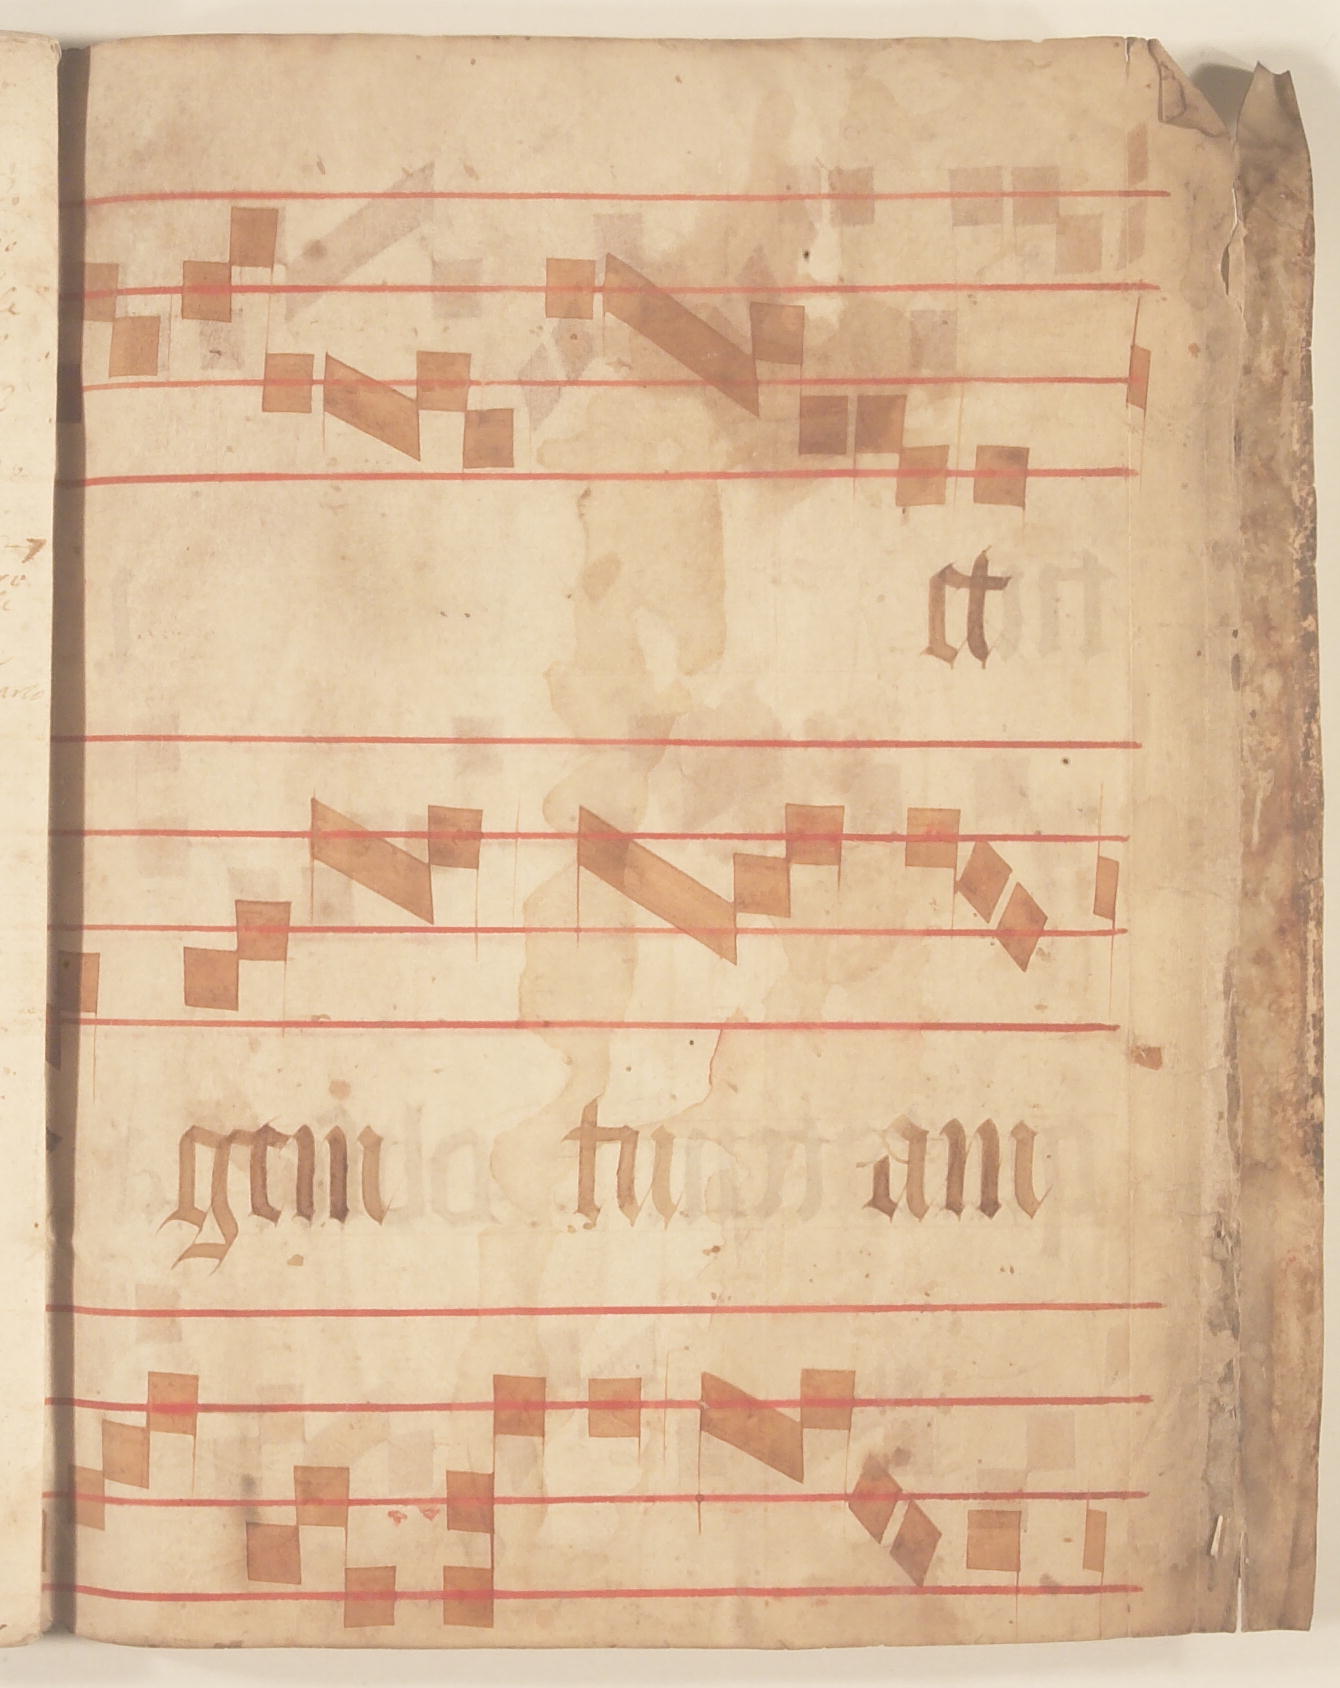 et
gem tu am